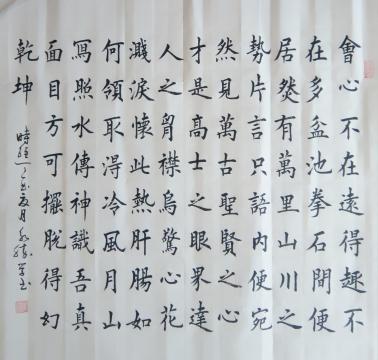 會心不在遠得趣不
在多盆池拳石間便
居然有萬里山川之
勢片言只語内便宛
然見萬古聖賢之心
才是高士之眼界達
人之胷襟烏驚心花
濺淚懷此熱肝腸如
何領取得冷風月山
寫照水傳神識吾真
面目方可擺脱得幻
乾坤
時維丁亥夏月